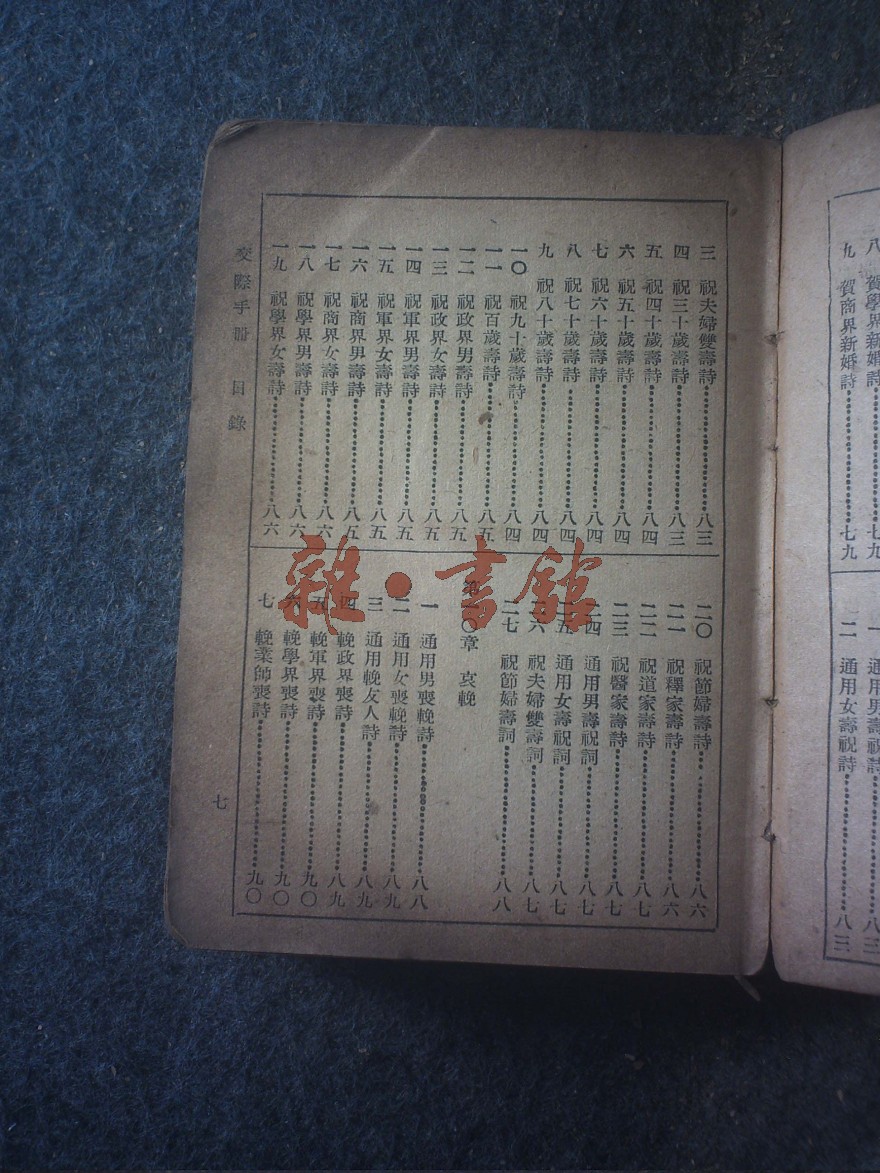 八 賀學界新婚詩 七九
九 賀商界新婚詩 七九
一 通用男壽祝詩 八三
二 通用女壽祝詩 八三
三 祝夫婦雙壽詩 八三
四 祝三十歲壽詩 八三
五 祝四十歲壽詩 八四
六 祝五十歲壽詩 八四
七 祝六十歲壽詩 八四
八 祝七十歲壽詩 八四
九 祝八十歲壽詩 八四
一〇 祝九十歲壽詩 八四
一一 祝百歲壽詩 八五
一二 祝政界男壽詩 八五
一三 祝政界女壽詩 八五
一四 祝軍界男壽詩 八五
一五 祝軍界女壽詩 八五
一六 祝商界男壽詩 八五
一七 祝商界女壽詩 八六
一八 祝學界男壽詩 八六
一九 祝學界女壽詩 八六
二〇 祝節婦壽詩 八六
二一 祝釋家壽詩 八六
二二 祝道家壽詩 八七
二三 祝醫家壽詩 八七
二四 通用男壽祝詞 八七
二五 通用女壽祝詞 八七
二六 祝夫婦雙壽詞 八七
二七 祝節婦壽詞 八八
第一〇章 哀輓
一 通用男喪輓詩 八八
二 通用女喪輓詩 八九
三 通用輓友人詩 八九
四 輓政界喪詩 八九
五 輓軍界喪詩 九〇
六 輓學界喪詩 九〇
七 輓業師喪詩 九〇
交際手冊 目錄
七
雜·書館